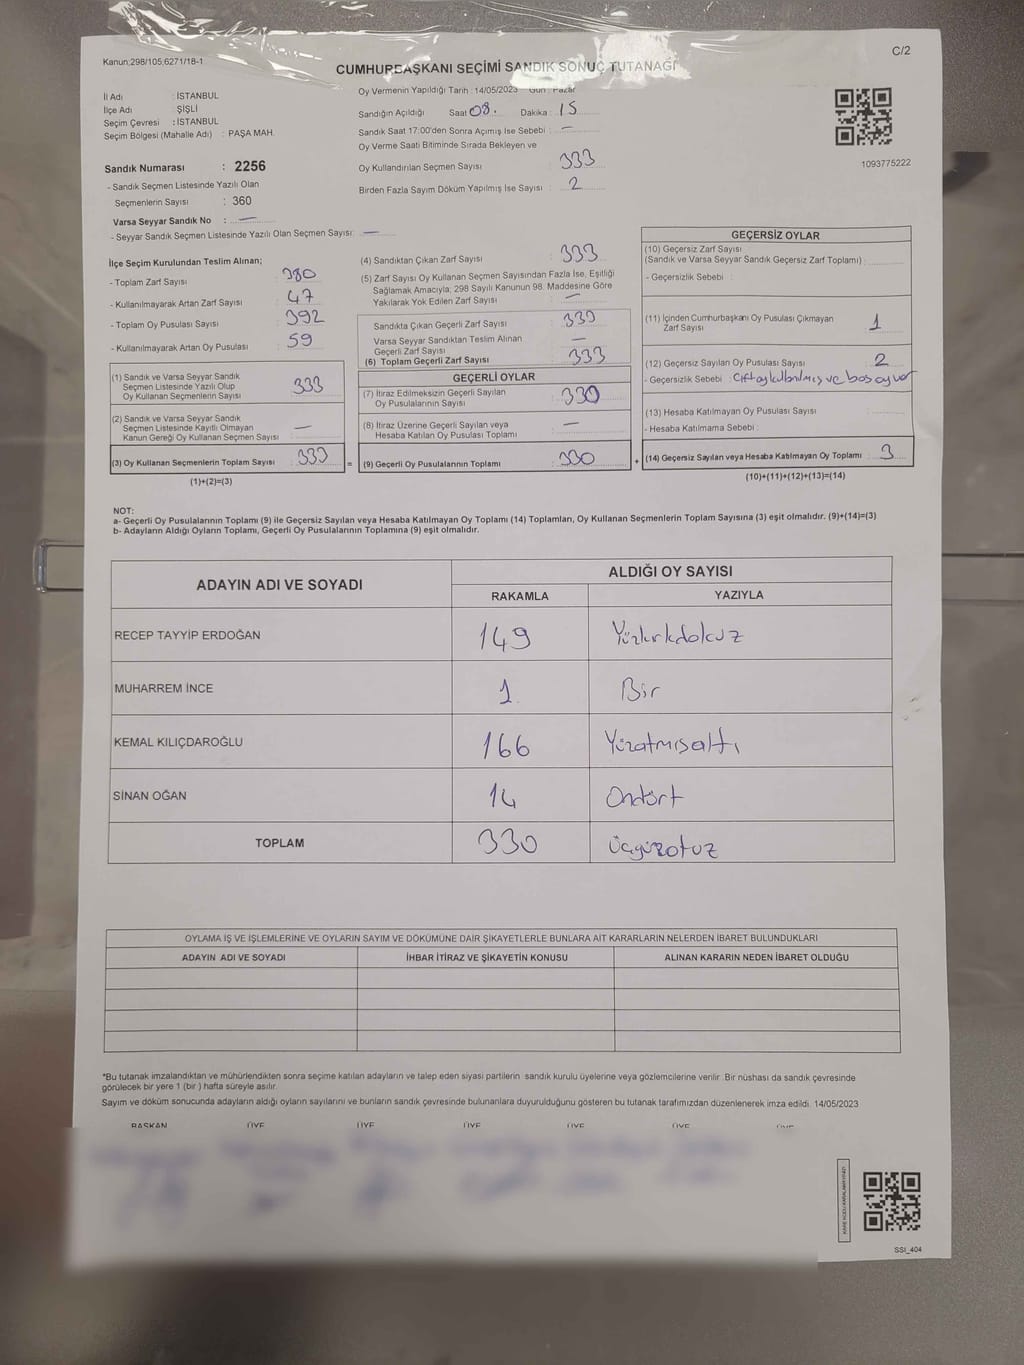 C/2
Kanun;298/105,6271/18-1
CUMHURBAŞKANI SEÇİMİ SANDIK SONUÇ TUTANAĞI
İl Adı : İSTANBUL
İlçe Adı : ŞİŞLİ
Seçim Çevresi : İSTANBUL
Seçim Bölgesi (Mahalle Adı) : PAŞA MAH.
Sandık Numarası : 2256
- Sandık Seçmen Listesinde Yazılı Olan
Seçmenlerin Sayısı : 360
Varsa Seyyar Sandık No : —
- Seyyar Sandık Seçmen Listesinde Yazılı Olan Seçmen Sayısı: —
Oy Vermenin Yapıldığı Tarih : 14/05/2023 Gün : Pazar
Sandığın Açıldığı Saat 08. Dakika : 15
Sandık Saat 17:00'den Sonra Açımış İse Sebebi : —
Oy Verme Saati Bitiminde Sırada Bekleyen ve
Oy Kullandırılan Seçmen Sayısı : 333
Birden Fazla Sayım Döküm Yapılmış İse Sayısı : 2
1093775222
İlçe Seçim Kurulundan Teslim Alınan;
- Toplam Zarf Sayısı : 380
- Kullanılmayarak Artan Zarf Sayısı : 47
- Toplam Oy Pusulası Sayısı : 392
- Kullanılmayarak Artan Oy Pusulası : 59
(1) Sandık ve Varsa Seyyar Sandık
Seçmen Listesinde Yazılı Olup
Oy Kullanan Seçmenlerin Sayısı : 333
(2) Sandık ve Varsa Seyyar Sandık
Seçmen Listesinde Kayıtlı Olmayan
Kanun Gereği Oy Kullanan Seçmen Sayısı : —
(3) Oy Kullanan Seçmenlerin Toplam Sayısı : 333
(1)+(2)=(3)
=
(4) Sandıktan Çıkan Zarf Sayısı : 333
(5) Zarf Sayısı Oy Kullanan Seçmen Sayısından Fazla İse, Eşitliği
Sağlamak Amacıyla; 298 Sayılı Kanunun 98. Maddesine Göre
Yakılarak Yok Edilen Zarf Sayısı : —
Sandıkta Çıkan Geçerli Zarf Sayısı : 333
Varsa Seyyar Sandıktan Teslim Alınan
Geçerli Zarf Sayısı : —
(6) Toplam Geçerli Zarf Sayısı : 333
GEÇERLİ OYLAR
(7) İtiraz Edilmeksizin Geçerli Sayılan
Oy Pusulalarının Sayısı : 330
(8) İtiraz Üzerine Geçerli Sayılan veya
Hesaba Katılan Oy Pusulası Toplamı : —
(9) Geçerli Oy Pusulalarının Toplamı : 330
+
GEÇERSİZ OYLAR
(10) Geçersiz Zarf Sayısı
(Sandık ve Varsa Seyyar Sandık Geçersiz Zarf Toplamı) :
- Geçersizlik Sebebi :
(11) İçinden Cumhurbaşkanı Oy Pusulası Çıkmayan
Zarf Sayısı : 1
(12) Geçersiz Sayılan Oy Pusulası Sayısı : 2
- Geçersizlik Sebebi : Çift oy kullanılmış ve boş oy var
(13) Hesaba Katılmayan Oy Pusulası Sayısı :
- Hesaba Katılmama Sebebi :
(14) Geçersiz Sayılan veya Hesaba Katılmayan Oy Toplamı : 3
(10)+(11)+(12)+(13)=(14)
NOT:
a- Geçerli Oy Pusulalarının Toplamı (9) ile Geçersiz Sayılan veya Hesaba Katılmayan Oy Toplamı (14) Toplamları, Oy Kullanan Seçmenlerin Toplam Sayısına (3) eşit olmalıdır. (9)+(14)=(3)
b- Adayların Aldığı Oyların Toplamı, Geçerli Oy Pusulalarının Toplamına (9) eşit olmalıdır.
ADAYIN ADI VE SOYADI
ALDIĞI OY SAYISI
RAKAMLA YAZIYLA
RECEP TAYYİP ERDOĞAN 149 Yüzkırkdokuz
MUHARREM İNCE 1 Bir
KEMAL KILIÇDAROĞLU 166 Yüzatmışaltı
SİNAN OĞAN 14 Ondört
TOPLAM 330 Üçyüzotuz
OYLAMA İŞ VE İŞLEMLERİNE VE OYLARIN SAYIM VE DÖKÜMÜNE DAİR ŞİKAYETLERLE BUNLARA AİT KARARLARIN NELERDEN İBARET BULUNDUKLARI
ADAYIN ADI VE SOYADI İHBAR İTİRAZ VE ŞİKAYETİN KONUSU ALINAN KARARIN NEDEN İBARET OLDUĞU
*Bu tutanak imzalandıktan ve mühürlendikten sonra seçime katılan adayların ve talep eden siyasi partilerin sandık kurulu üyelerine veya gözlemcilerine verilir. Bir nüshası da sandık çevresinde
görülecek bir yere 1 (bir ) hafta süreyle asılır.
Sayım ve döküm sonucunda adayların aldığı oyların sayılarını ve bunların sandık çevresinde bulunanlara duyurulduğunu gösteren bu tutanak tarafımızdan düzenlenerek imza edildi. 14/05/2023
BAŞKAN ÜYE ÜYE ÜYE ÜYE ÜYE ÜYE
SSI_404